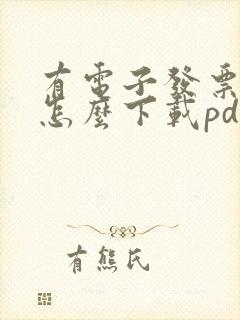 有電子發票
怎麼下載pd
有熊氏